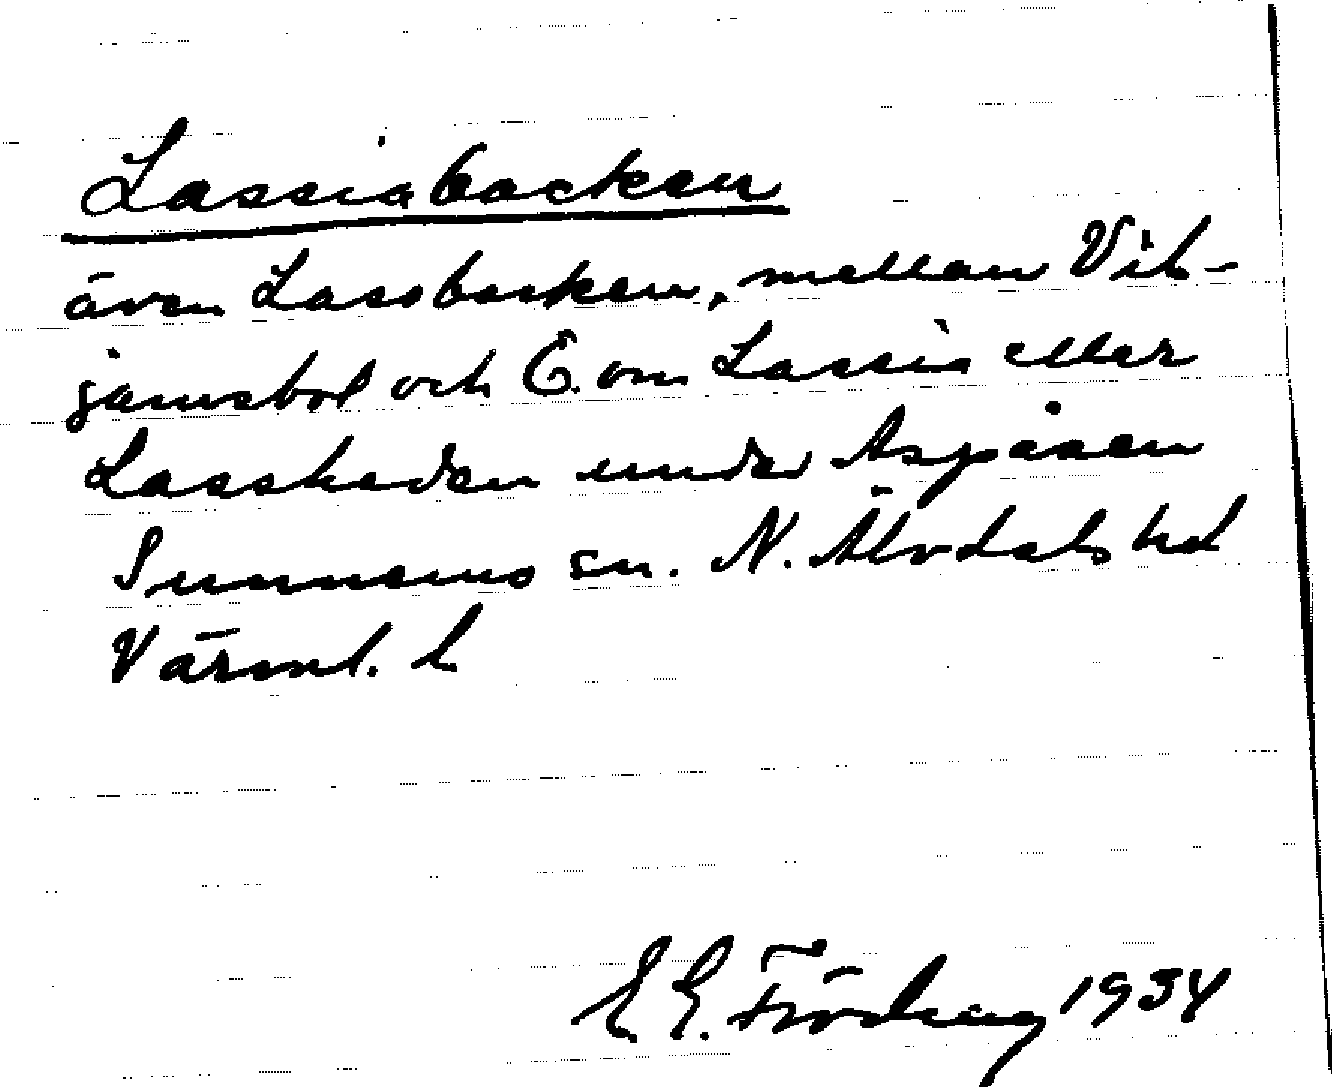 Lassiabacken
även Lassbacken, mellan Vil-
jamsbol och E. om Lassia eller
Lassheden under Aspåsen
Sunnemo sn. N. Älvdals hd
Värml. L
E E. Fördrag 1934